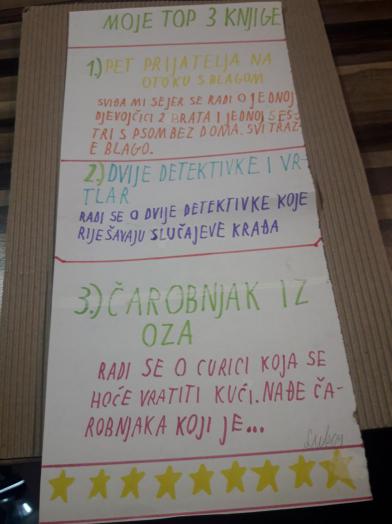 MOJE TOP 3 KNJIGE
1.) PET PRIJATELJA NA
OTOKU S BLAGOM
SVIĐA MI SEJER SE RADI O JEDNOJ
DJEVOJČICI 2 BRATA I JEDNOJ SES-
TRI S PSOM BEZ DOMA. SVI TRAŽ-
E BLAGO.
2.) DVIJE DETEKTIVKE I VR-
TLAR
RADI SE O DVIJE DETEKTIVKE KOJE
RIJEŠAVAJU SLUČAJEVE KRAĐA
3.) ČAROBNJAK IZ
OZA
RADI SE O CURICI KOJA SE
HOĆE VRATITI KUĆI. NAĐE ČA-
ROBNJAKA KOJI JE...